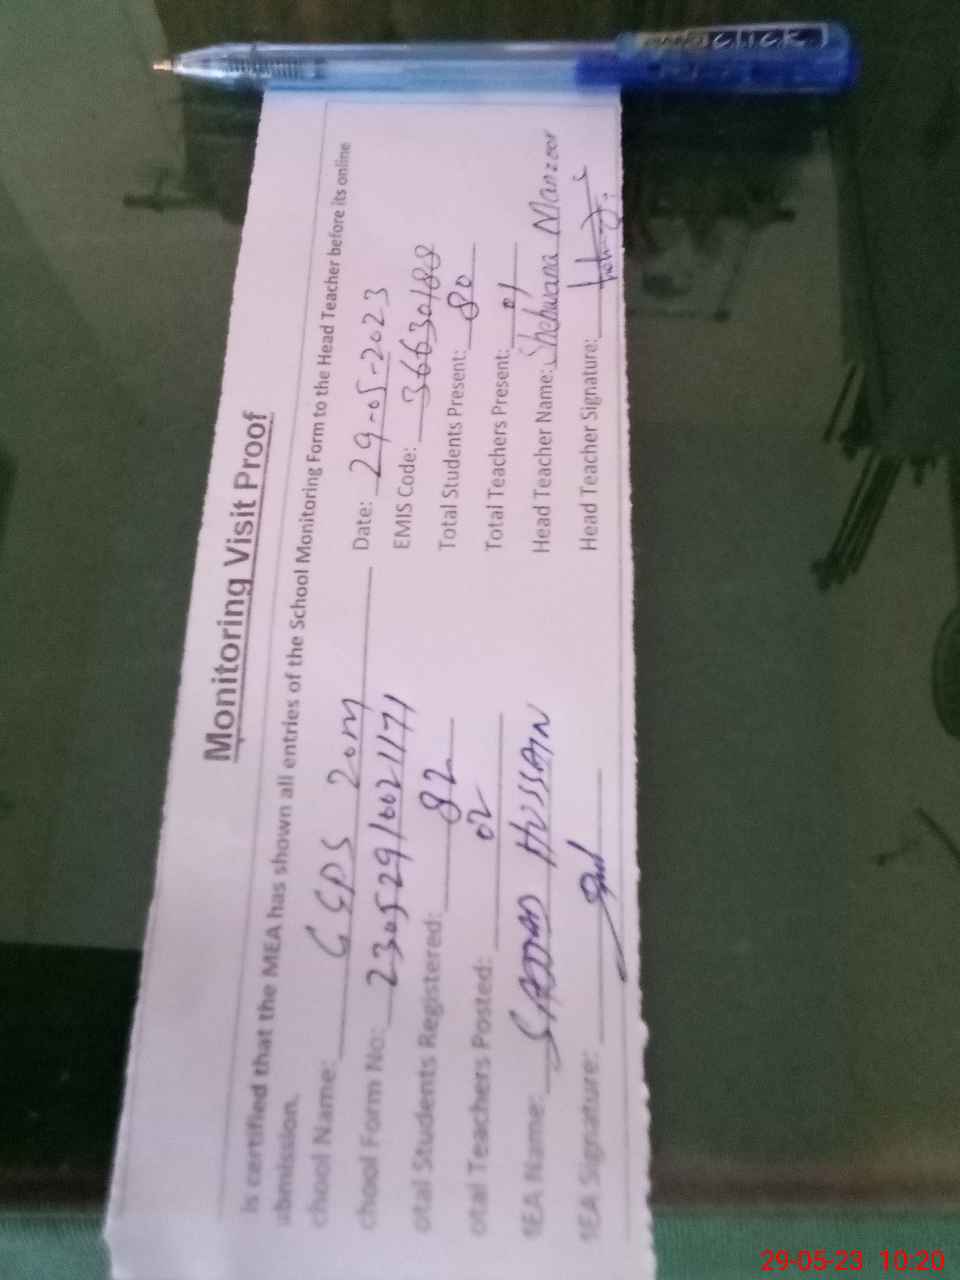 Monitoring Visit Proof
is certified that the MEA has shown all entries of the School Monitoring Form to the Head Teacher before its online
ubmission.
chool Name: GGPS 20M Date: 29-05-2023
chool Form No: 230529/0021171 EMIS Code: 36630188
otal Students Registered: 82 Total Students Present: 80
otal Teachers Posted: 02 Total Teachers Present: 01
MEA Name: SADDAD HUSSAIN Head Teacher Name: Shehwana Manzoor
MEA Signature: Head Teacher Signature:
click
29-05-23 10:20